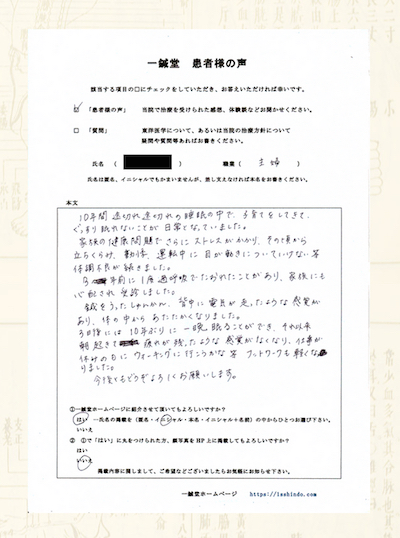 一鍼堂 患者様の声
該当する項目の□にチェックをしていただき、お答えいただければ幸いです。
☑ 「患者様の声」 当院で治療を受けられた感想、体験談などお聞かせください。
□ 「質問」 東洋医学について、あるいは当院の治療方針について
疑問や質問等あればお書きください。
氏名 ( ) 職業 ( 主婦 )
氏名は匿名、イニシャルでもかまいませんが、差し支えなければ本名をお書きください。
本文
10年間 途切れ途切れの睡眠の中で、子育てをしてきて、
ぐっすり眠れないことが日常となっていました。
家族の健康問題でさらにストレスがかかり、その頃から
立ちくらみ、動悸、運転中に目が動きについていけない等
体調不良が続きました。
3 年前に1度過呼吸でたおれたことがあり、家族にも
心配され受診しました。
鍼をうったしゅんかん、背中に電気が走ったような感覚が
あり、体の中からあたたかくなりました。
3日後には10年ぶりに一晩眠ることができ、それ以来
朝起きて 疲れが残ったような感覚がなくなり、仕事が
休みの日にウォーキングに行こうかな等 フットワークも軽くな
りました。
今後ともどうぞよろしくお願いします。
①一鍼堂ホームページに紹介させて頂いてもよろしいですか？
はい ―氏名の掲載を（匿名・イニシャル・本名・イニシャル＋名前）の中からひとつお選び下さい。
いいえ
② ①で「はい」に丸をつけられた方、顔写真を HP 上に掲載してもよろしいですか？
はい
いいえ
掲載内容に関しまして、ご希望などございましたらお気軽にお知らせ下さい。
一鍼堂ホームページ https://isshindo.com